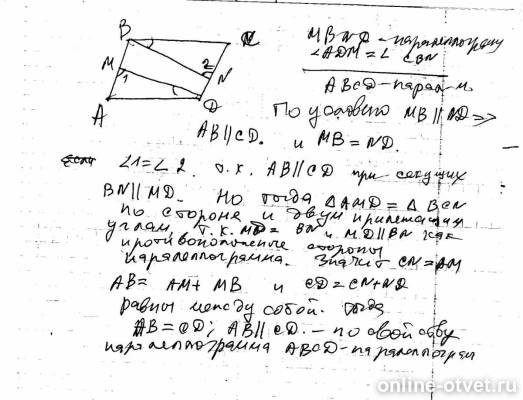 B C
M 2
N
1
A D
MBND - параллелограмм
∠ADM = ∠CBN
ABCD - парал-м.
По условию MB || ND =>
AB || CD. и MB = ND.
∠1 = ∠2. т.к. AB || CD при секущих
BN || MD. Но тогда △AMD = △BCN
по стороне и двум прилежащим
углам, т.к. MD = BN и MD || BN как
противоположные стороны
параллелограмма. Значит CN = AM
AB = AM + MB и CD = CN + ND
равны между собой. Тогда
AB = CD; AB || CD. - по свойству
параллелограмма ABCD - параллелограм
online-otvet.ru